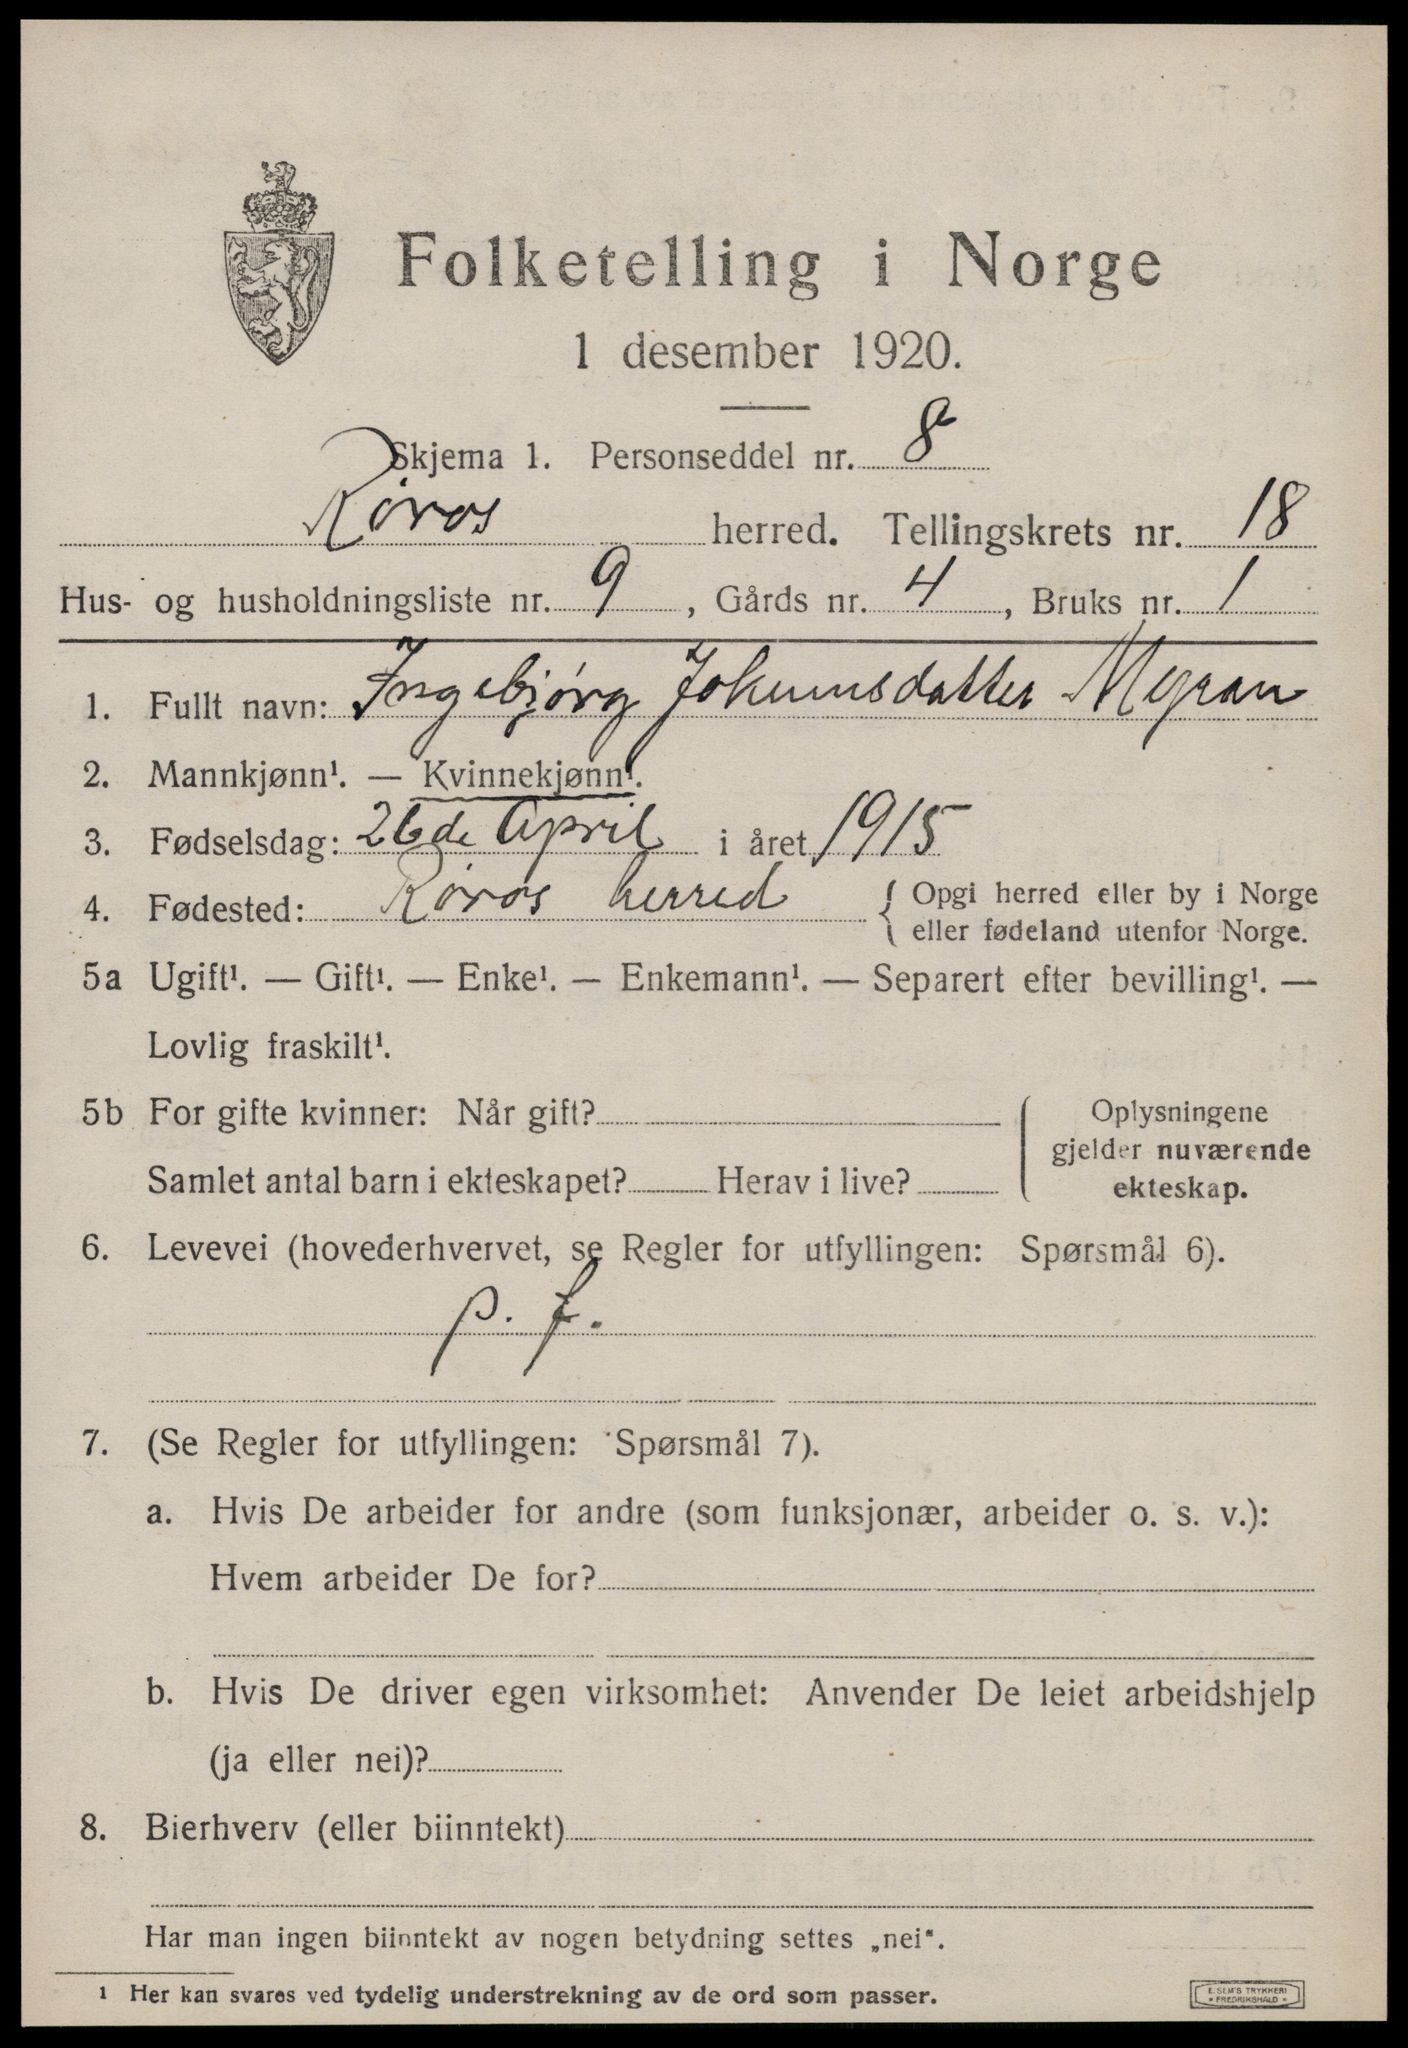 Folketelling i Norge
1 desember 1920.
Skjema 1. Personseddel nr. 8
Røros herred. Tellingskrets nr. 18
Hus- og husholdningsliste nr. 9, Gårds nr. 4, Bruks nr. 1
1. Fullt navn: Ingebjørg Johnnsdatter Myran
2. Mannkjønn¹. — Kvinnekjønn¹.
3. Fødselsdag: 26de April i året 1915
4. Fødested: Røros herred { Opgi herred eller by i Norge
eller fødeland utenfor Norge.
5a Ugift¹. — Gift¹. — Enke¹. — Enkemann¹. — Separert efter bevilling¹. —
Lovlig fraskilt¹.
5b For gifte kvinner: Når gift?
Samlet antal barn i ekteskapet? Herav i live?
Oplysningene
gjelder nuværende
ekteskap.
6. Levevei (hovederhvervet, se Regler for utfyllingen: Spørsmål 6).
p. f.
7. (Se Regler for utfyllingen: Spørsmål 7).
a. Hvis De arbeider for andre (som funksjonær, arbeider o. s. v.):
Hvem arbeider De for?
b. Hvis De driver egen virksomhet: Anvender De leiet arbeidshjelp
(ja eller nei)?
8. Bierhverv (eller biinntekt)
Har man ingen biinntekt av nogen betydning settes „nei“.
¹ Her kan svares ved tydelig understrekning av de ord som passer.
E. SEM'S TRYKKERI
• FREDRIKSHALD •